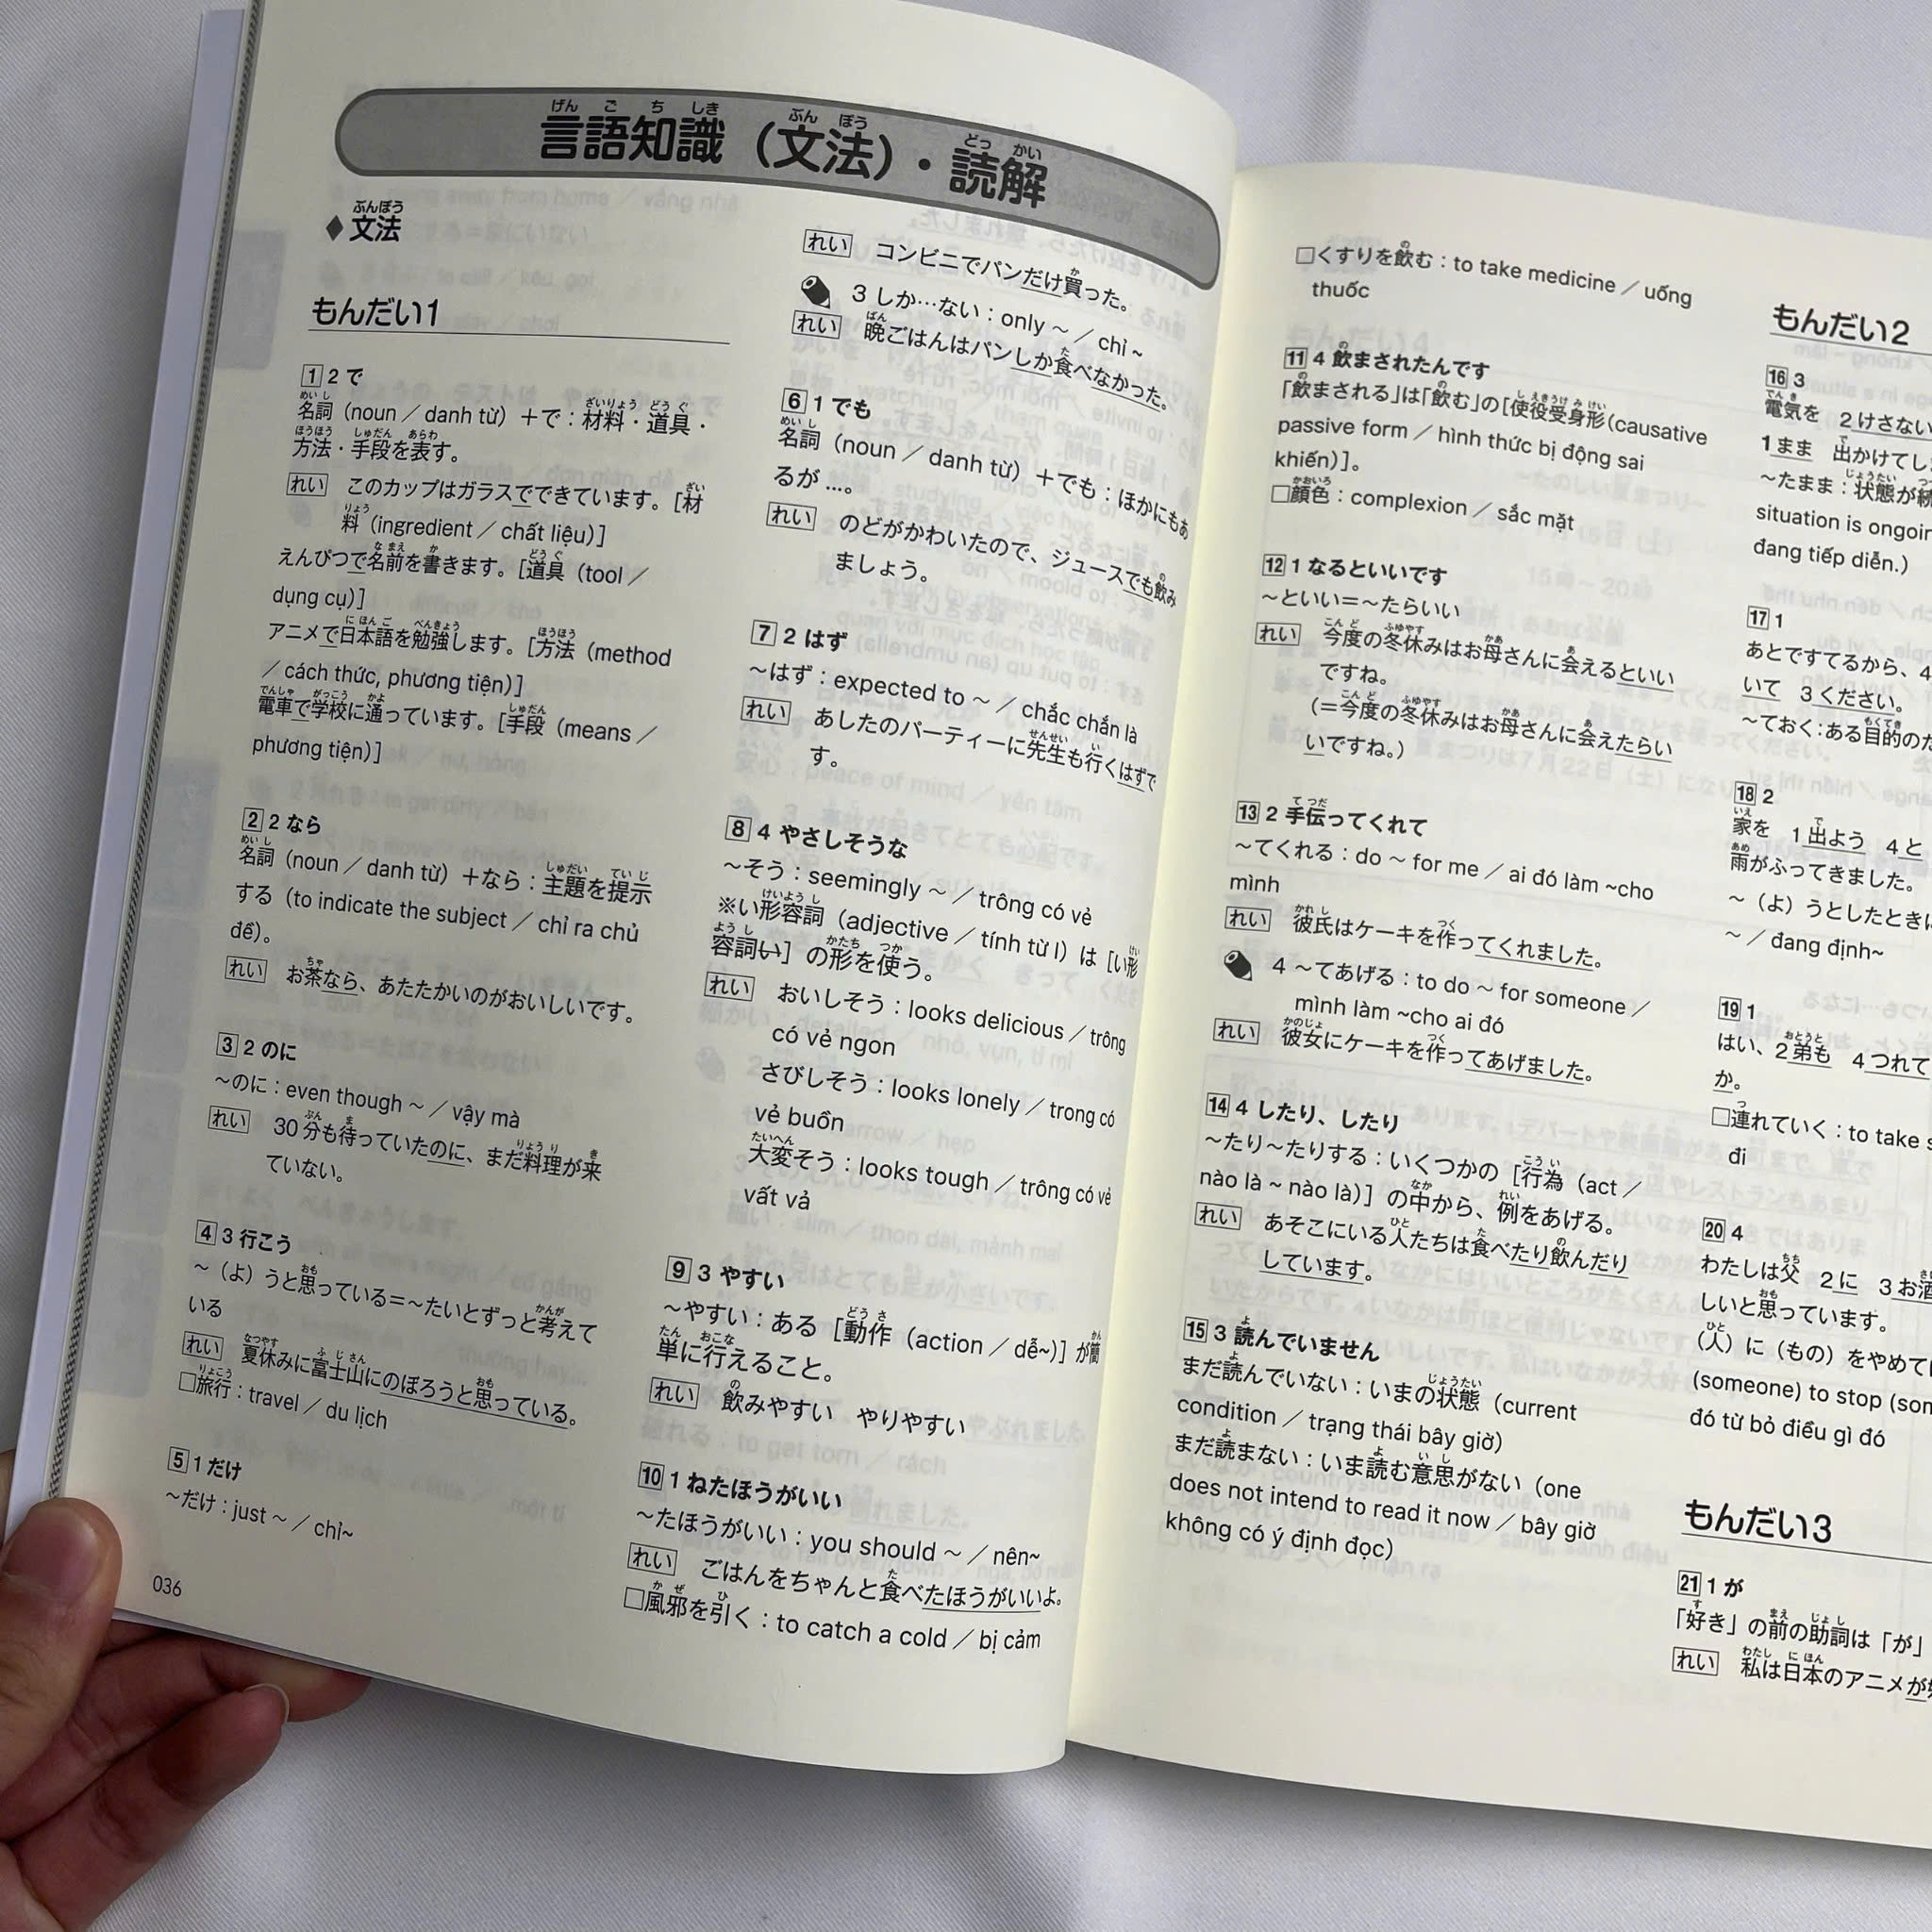 言語知識（文法）・読解
◆文法
もんだい1
1 2 で
名詞（noun／danh từ）＋で：材料・道具・
方法・手段を表す。
れい このカップはガラスでできています。[材
料（ingredient／chất liệu）]
えんぴつで名前を書きます。[道具（tool／
dụng cụ）]
アニメで日本語を勉強します。[方法（method
／cách thức, phương tiện）]
電車で学校に通っています。[手段（means／
phương tiện）]
2 2 なら
名詞（noun／danh từ）＋なら：主題を提示
する（to indicate the subject／chỉ ra chủ
đề）。
れい お茶なら、あたたかいのがおいしいです。
3 2 のに
～のに：even though ～／vậy mà
れい 30分も待っていたのに、まだ料理が来
ていない。
4 3 行こう
～（よ）うと思っている＝～たいとずっと考えて
いる
れい 夏休みに富士山にのぼろうと思っている。
□旅行：travel／du lịch
5 1 だけ
～だけ：just ～／chỉ~
036
れい コンビニでパンだけ買った。
3 しか…ない：only ～／chỉ ~
れい 晩ごはんはパンしか食べなかった。
6 1 でも
名詞（noun／danh từ）＋でも：ほかにもあ
るが …。
れい のどがかわいたので、ジュースでも飲み
ましょう。
7 2 はず
～はず：expected to ～／chắc chắn là
れい あしたのパーティーに先生も行くはずで
す。
8 4 やさしそうな
～そう：seemingly ～／trông có vẻ
※い形容詞（adjective／tính từ I）は［い形
容詞い］の形を使う。
れい おいしそう：looks delicious／trông
có vẻ ngon
さびしそう：looks lonely／trong có
vẻ buồn
大変そう：looks tough／trông có vẻ
vất vả
9 3 やすい
～やすい：ある［動作（action／dễ~)］が簡
単に行えること。
れい 飲みやすい やりやすい
10 1 ねたほうがいい
～たほうがいい：you should ～／nên~
れい ごはんをちゃんと食べたほうがいいよ。
□風邪を引く：to catch a cold／bị cảm
□くすりを飲む：to take medicine／uống
thuốc
11 4 飲まされたんです
「飲まされる」は「飲む」の[使役受身形(causative
passive form／hình thức bị động sai
khiến)]。
□顔色：complexion／sắc mặt
12 1 なるといいです
～といい＝～たらいい
れい 今度の冬休みはお母さんに会えるといい
ですね。
（＝今度の冬休みはお母さんに会えたらい
いですね。）
13 2 手伝ってくれて
～てくれる：do ～ for me／ai đó làm ~cho
mình
れい 彼氏はケーキを作ってくれました。
4 ～てあげる：to do ～ for someone／
mình làm ~cho ai đó
れい 彼女にケーキを作ってあげました。
14 4 したり、したり
～たり～たりする：いくつかの［行為（act／
nào là ~ nào là)］の中から、例をあげる。
れい あそこにいる人たちは食べたり飲んだり
しています。
15 3 読んでいません
まだ読んでいない：いまの状態（current
condition／trạng thái bây giờ）
まだ読まない：いま読む意思がない（one
does not intend to read it now／bây giờ
không có ý định đọc）
もんだい2
16 3
電気を 2けさない
1まま 出かけてし
～たまま：状態が
situation is ongoin
đang tiếp diễn.)
17 1
あとですてるから、4
いて 3ください。
～ておく：ある目的のた
18 2
家を 1出よう 4と
雨がふってきました。
～（よ）うとしたときに
～／đang định~
19 1
はい、2弟も 4つれて
か。
□連れていく：to take s
đi
20 4
わたしは父 2に 3お酒
しいと思っています。
（人）に（もの）をやめて
(someone) to stop (som
đó từ bỏ điều gì đó
もんだい3
21 1 が
「好き」の前の助詞は「が」
れい 私は日本のアニメが